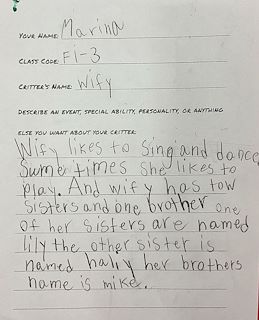 YOUR NAME: Marina
CLASS CODE: F1-3
CRITTER'S NAME: Wify
DESCRIBE AN EVENT, SPECIAL ABILITY, PERSONALITY, OR ANYTHING
ELSE YOU WANT ABOUT YOUR CRITTER:
Wify likes to sing and dance
Sume times she likes to
play. And wify has tow
sisters and one brother one
of her sisters are named
lily the other sister is
named haliy her brothers
name is mike.